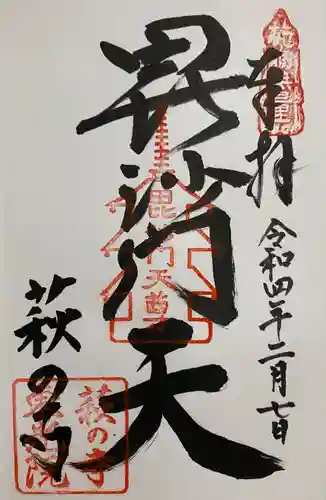 奉拝
令和四年二月七日
毘沙門天
毘沙門天尊
萩の寺
萩の寺